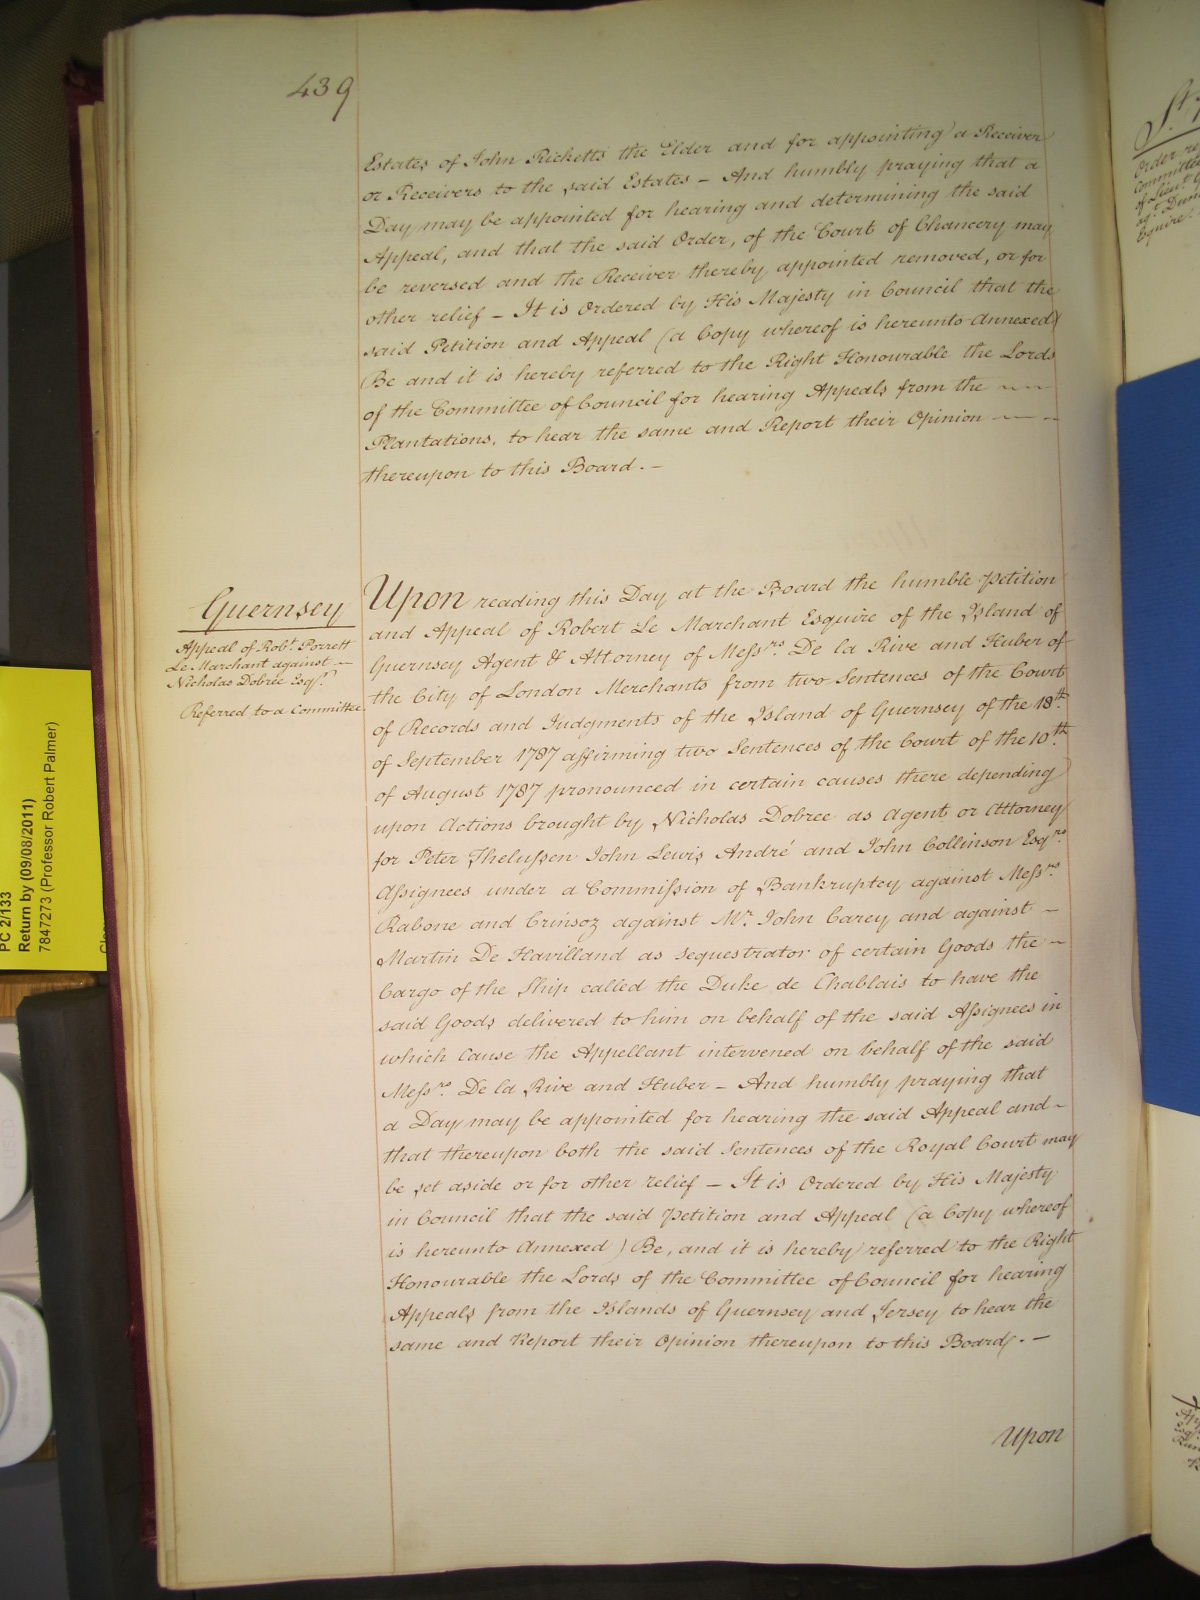 439
Estates of John Ricketts the Elder and for appointing a Receiver
or Receivers to the said Estates – And humbly praying that a
Day may be appointed for hearing and determining the said
Appeal, and that the said Order, of the Court of Chancery may
be reversed and the Receiver thereby appointed removed, or for
other relief – It is Ordered by His Majesty in Council that the
said Petition and Appeal (a Copy whereof is hereunto Annexed)
Be and it is hereby referred to the Right Honourable the Lords
of the Committee of Council for hearing Appeals from the
Plantations, to hear the same and Report their Opinion
thereupon to this Board. –
Guernsey
Appeal of Robt. Porrett
Le Marchant against –
Nicholas Dobree Esqr.
Referred to a Committee
Upon reading this Day at the Board the humble Petition
and Appeal of Robert Le Marchant Esquire of the Island of
Guernsey Agent & Attorney of Messrs. De la Rive and Huber of
the City of London Merchants from two Sentences of the Court
of Records and Judgments of the Island of Guernsey of the 18th.
of September 1787 affirming two Sentences of the Court of the 10th.
of August 1787 pronounced in certain causes there depending
upon Actions brought by Nicholas Dobree as Agent or Attorney
for Peter Thelussen John Lewis André and John Collinson Esqrs.
Assignees under a Commission of Bankruptcy against Messrs.
Rabone and Crinsoz against Mr. John Carey and against –
Martin De Havilland as sequestrator of certain Goods the –
Cargo of the Ship called the Duke de Chablais to have the
said Goods delivered to him on behalf of the said Assignees in
which Cause the Appellant intervened on behalf of the said
Messrs. De la Rive and Huber – And humbly praying that
a Day may be appointed for hearing the said Appeal and –
that thereupon both the said Sentences of the Royal Court may
be set aside or for other relief – It is Ordered by His Majesty
in Council that the said Petition and Appeal (a Copy whereof
is hereunto Annexed) Be, and it is hereby referred to the Right
Honourable the Lords of the Committee of Council for hearing
Appeals from the Islands of Guernsey and Jersey to hear the
same and Report their Opinion thereupon to this Board. –
Upon
PC 2/133
Return by (09/08/2011)
7847273 (Professor Robert Palmer)
Order
Committee
of Lieut.
Esquire